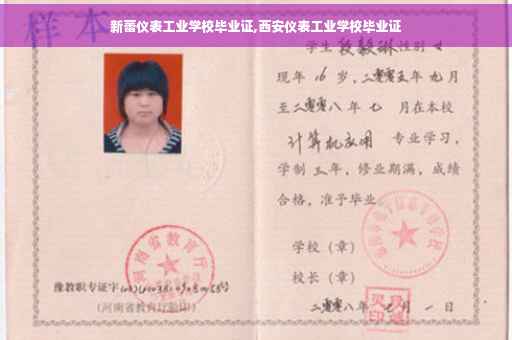 新蕾仪表工业学校毕业证,西安仪表工业学校毕业证
样本
学生 段毅琳 性别 女
现年 16 岁,二零零五年九月
至二零零八年七月在本校
计算机应用 专业学习,
学制三年,修业期满,成绩
合格,准予毕业
学校(章)
校长(章)
二零零八年 月一日
河南省教育厅
豫教职专证字
(河南省教育厅验印)